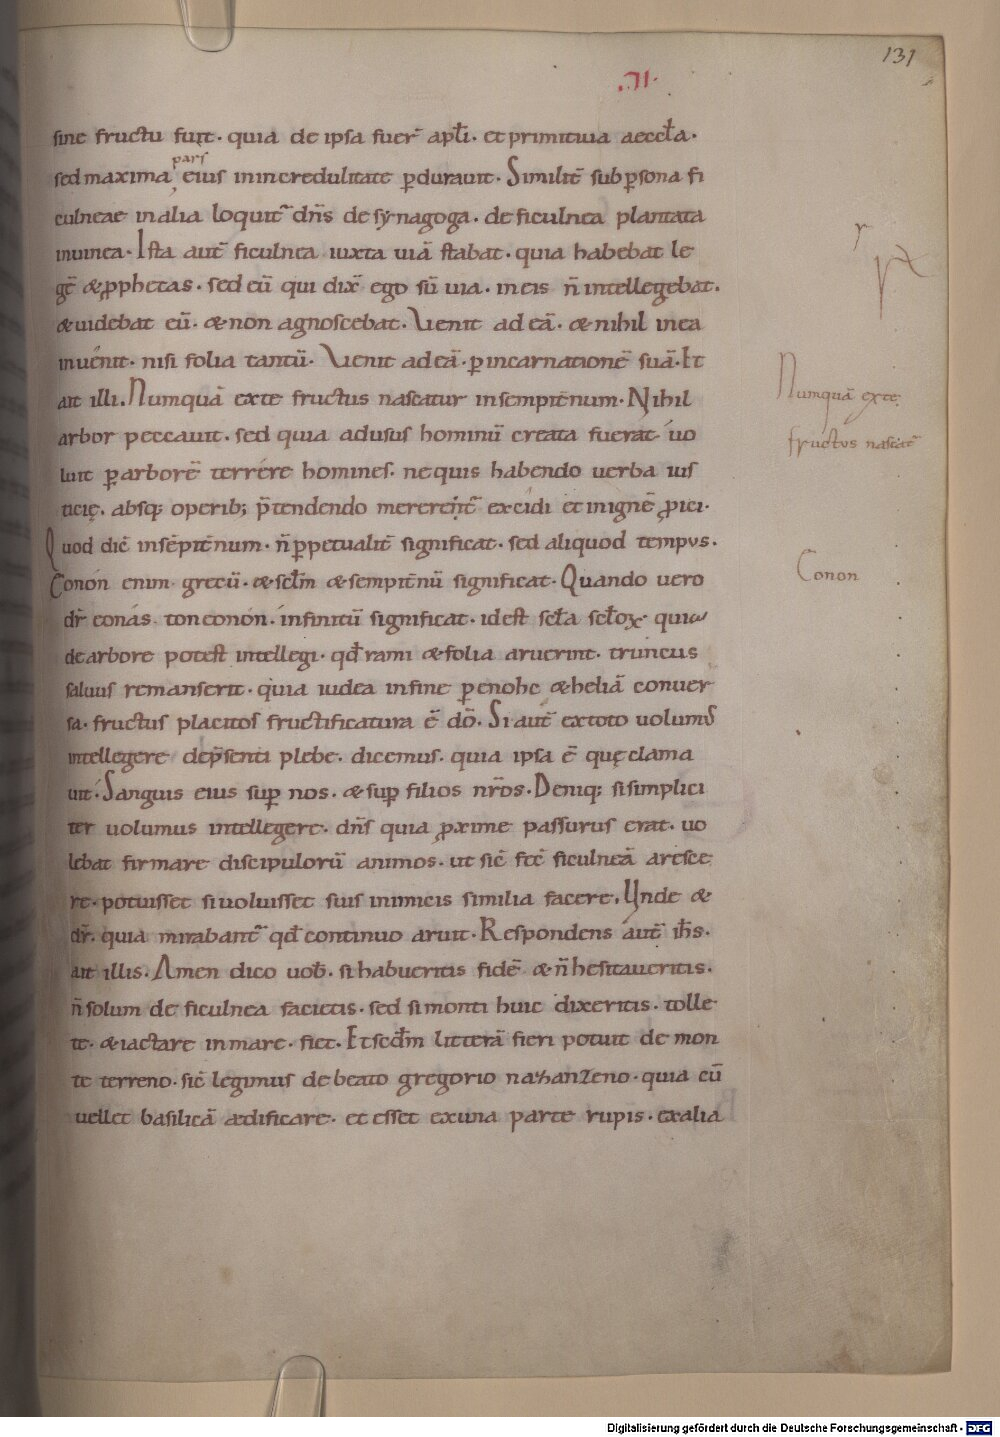 131
.VI.
sine fructu fuit. quia de ipsa fuer̄ apl̄i. et primitiuia aeccl̄a.
pars
sed maxima, eius in incredulitate ꝑdurauit. Similit̄ sub ꝑsona fi
culneae in alia loquit̄ dn̄s de synagoga. de ficulnea plantata
in uinea. Ista aut̄ ficulnea iuxta uiā stabat. quia habebat le
gē & ꝓphetas. sed eū qui dix̄ ego sū uia. in eis n̄ intellegebat.
& uidebat eū. & non agnoscebat. Uenit ad eā. & nihil in ea
inuenit. nisi folia tantū. Uenit ad eā. ꝑ incarnationē suā. Et
ait illi. Numquā ex te fructus nascatur in sempit̄num. Nihil
arbor peccauit. sed quia ad usus hominū creata fuerat. uo
luit ꝑ arborē terrére homines. ne quis habendo uerba ius
ticię. absq; operib; p̄tendendo mererent̄ excidi et in ignē ꝓici.
Quod dic̄ in sēpit̄num. n̄ ꝑpetualit̄ significat. sed aliquod tempus.
Conón enim grecū. & scl̄m & sempit̄nū significat. Quando uero
dr̄ eonás. ton eonón. infinitū significat. id est scl̄a scl̄oꝝ quia
de arbore potest intellegi. qd̄ rami & folia aruerint. truncus
saluus remanserit. quia iudea in fine ꝑ enohc & heliā conuer
sa. fructus placitos fructificatura ē dō. Si aut̄ ex toto uolumus
intellegere de p̄senti plebe. dicemus. quia ipsa ē quę clama
uit. Sanguis eius suꝑ nos. & suꝑ filios nr̄os. Deniq; si simplici
ter uolumus intellegere. dn̄s quia ꝓxime passurus erat. uo
lebat firmare discipulorū animos. ut sic̄ fec̄ ficulneā aresce
re. potuisset si uoluisset suis inimicis similia facere. Unde &
dr̄. quia mirabant̄ qd̄ continuo aruit. Respondens aut̄ ih̄s.
ait illis. Amen dico uob̄. si habueritis fidē & n̄ hesitaueritis.
n̄ solum de ficulnea facietis. sed si monti huic dixeritis. tolle
te. & iactare in mare. fiet. Et scd̄m litterā fieri potuit de mon
te terreno. sic̄ legimus de beato gregorio nazhanzeno. quia cū
uellet basilicā ædificare. et esset ex una parte rupis. ex alia
Numquā ex te
fructus nascat̄
Conon
Digitalisierung gefördert durch die Deutsche Forschungsgemeinschaft - DFG